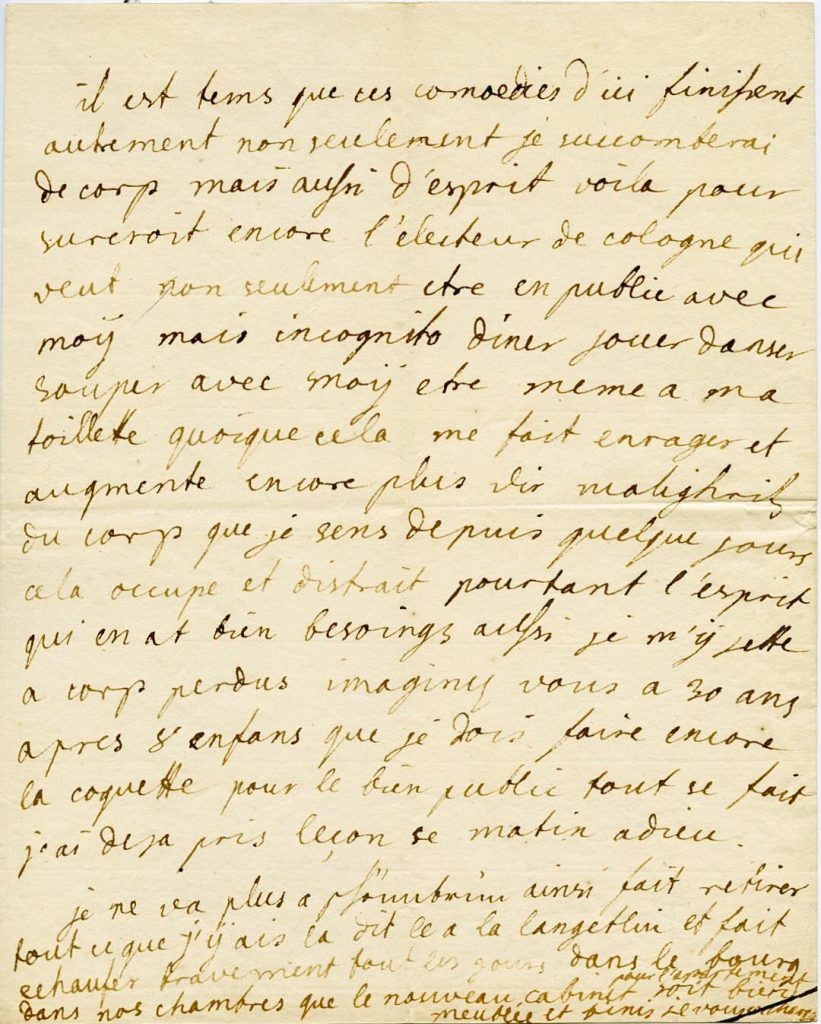 il est tems que ces comoedies d'ici finissent
autrement non seulement je succomberai
de corp mais aussi d'esprit voila pour
surcroit encore l'électeur de cologne qui
veut non seulement etre en public avec
moÿ mais incognito diner jouer danser
souper avec moÿ etre meme a ma
toillette quoique cela me fait enrager et
augmente encore plus die
du corp que je sens depuis quelque jours
cela occupe et distrait pourtant l'esprit
qui en at bien besoings aussi je m'ÿ jette
a corp perdus imaginez vous a 30 ans
apres 8 enfans que je dois faire encore
la coquette pour le bien public tout se fait
j'ai deja pris leçon se matin adieu.
je ne va plus a ainsi fait retirer
tout ce que j'ÿ ais la dit le a la et fait
echaufer bravement tout les jours dans le bourg
dans nos chambres que le nouveau cabinet soit bien
pour l'apartement
meublée et